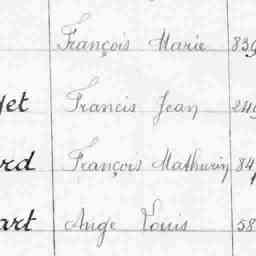 François Marie 839
jet Francis Jean 249
rd François Mathurin 84
art Ange Louis 58